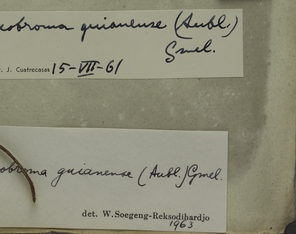 eobroma guianense (Aubl.)
Gmel.
r. J. Cuatrecasas 15-VIII-61
obroma guianense (Aubl.) Gmel.
det. W. Soegeng-Reksodihardjo
1963